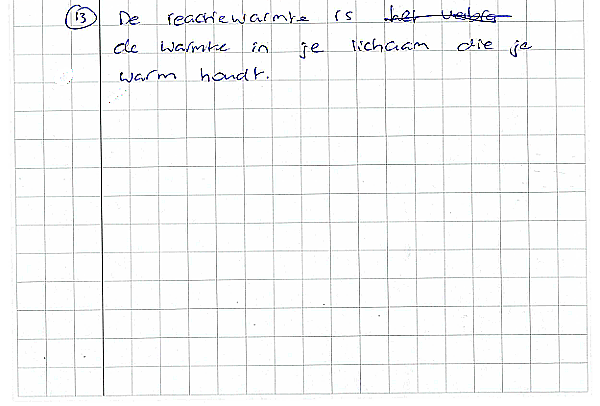 13 De reactiewarmte is het verbra
de warmte in je lichaam die je
warm houdt.